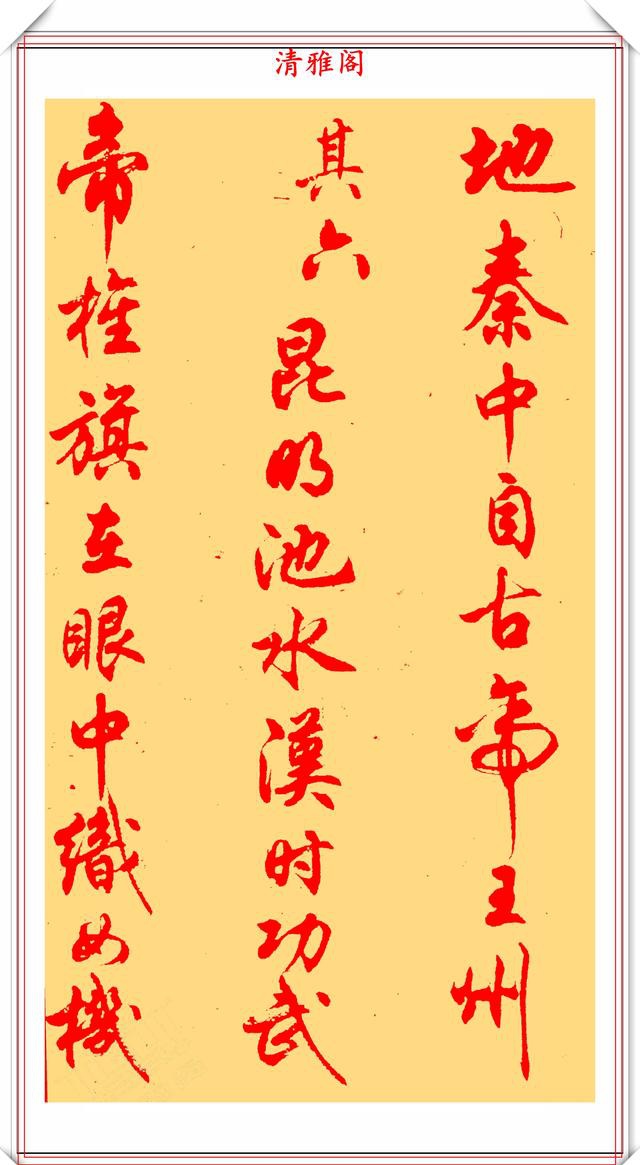 清雅阁
地秦中自古帝王州
其六昆明池水漢时功武
帝旌旗在眼中織女機